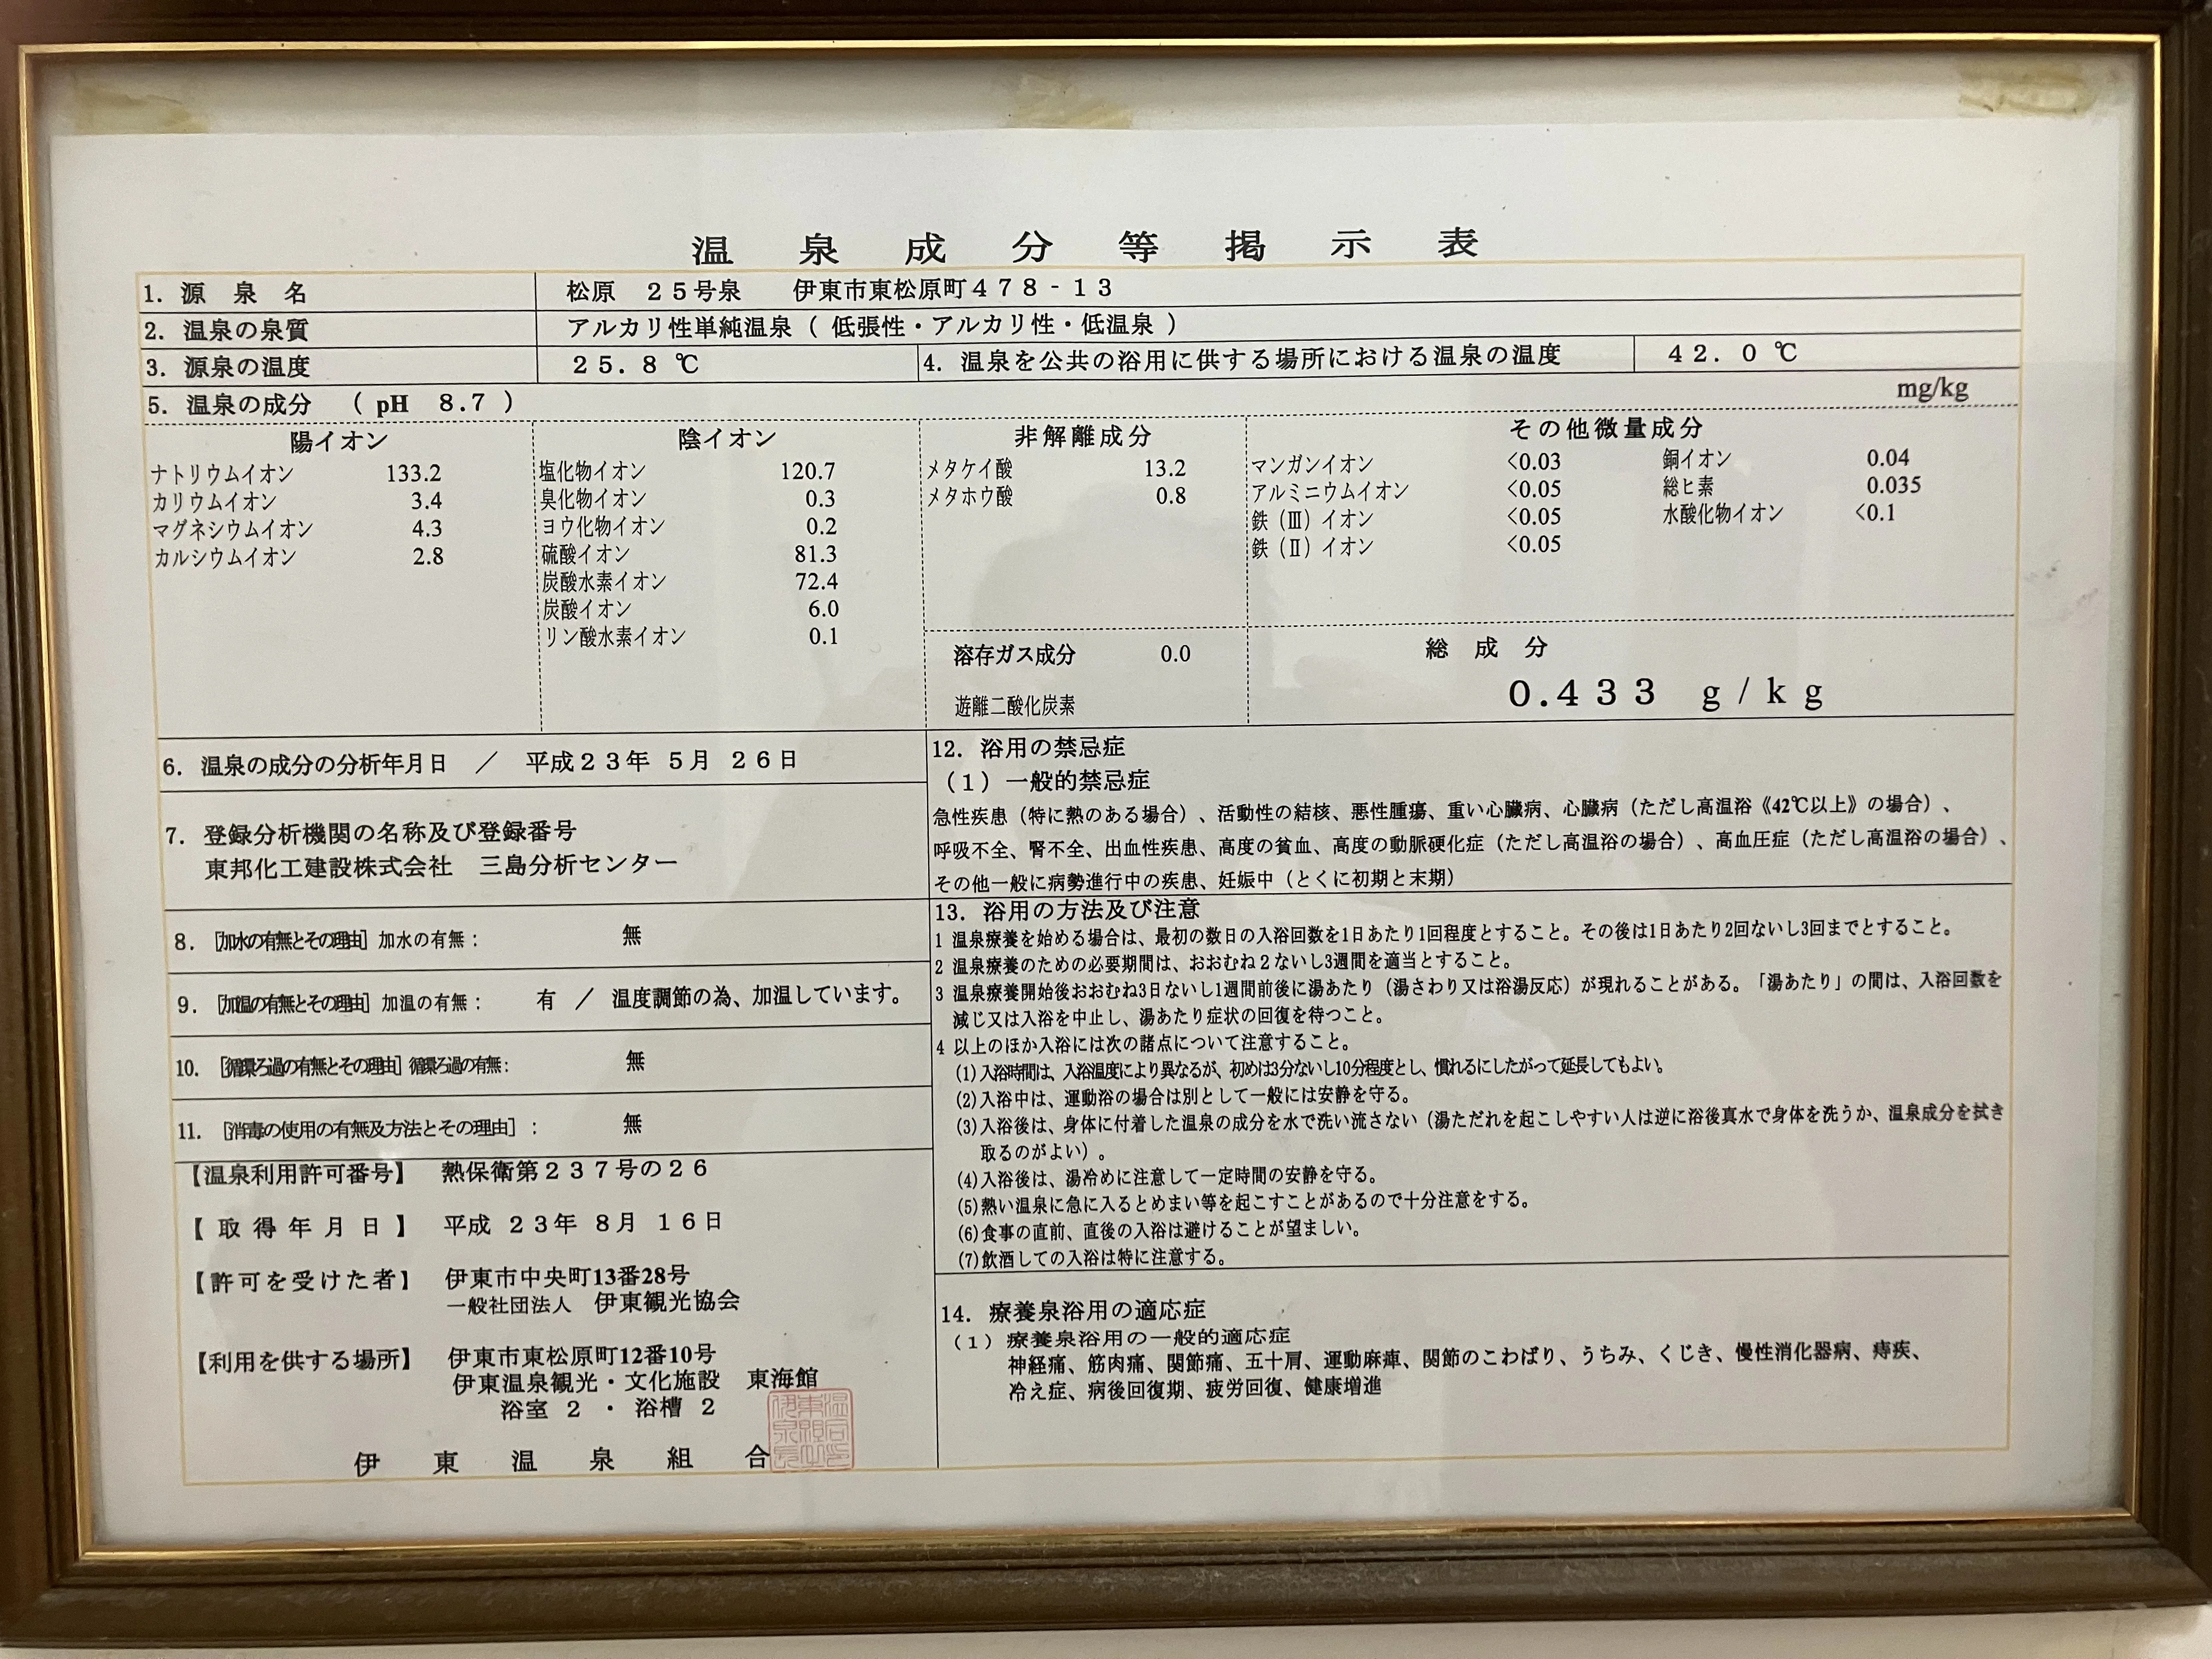 温泉成分等掲示表
1. 源泉名 松原 25号泉 伊東市東松原町478-13
2. 温泉の泉質 アルカリ性単純温泉（ 低張性・アルカリ性・低温泉 ）
3. 源泉の温度 25.8 ℃ 4. 温泉を公共の浴用に供する場所における温泉の温度 42.0 ℃
5. 温泉の成分 （ pH 8.7 ） mg/kg
陽イオン
ナトリウムイオン 133.2
カリウムイオン 3.4
マグネシウムイオン 4.3
カルシウムイオン 2.8
陰イオン
塩化物イオン 120.7
臭化物イオン 0.3
ヨウ化物イオン 0.2
硫酸イオン 81.3
炭酸水素イオン 72.4
炭酸イオン 6.0
リン酸水素イオン 0.1
非解離成分
メタケイ酸 13.2
メタホウ酸 0.8
溶存ガス成分 0.0
遊離二酸化炭素
その他微量成分
マンガンイオン <0.03 銅イオン 0.04
アルミニウムイオン <0.05 総ヒ素 0.035
鉄（Ⅲ）イオン <0.05 水酸化物イオン <0.1
鉄（Ⅱ）イオン <0.05
総成分
0.433 g/kg
6. 温泉の成分の分析年月日 ／ 平成23年 5月 26日
7. 登録分析機関の名称及び登録番号
東邦化工建設株式会社 三島分析センター
8. [加水の有無とその理由] 加水の有無： 無
9. [加温の有無とその理由] 加温の有無： 有 ／ 温度調節の為、加温しています。
10. [循環ろ過の有無とその理由] 循環ろ過の有無： 無
11. [消毒の使用の有無及方法とその理由]： 無
【温泉利用許可番号】 熱保衛第237号の26
【取得年月日】 平成 23年 8月 16日
【許可を受けた者】 伊東市中央町13番28号
一般社団法人 伊東観光協会
【利用を供する場所】 伊東市東松原町12番10号
伊東温泉観光・文化施設 東海館
浴室 2 ・ 浴槽 2
伊東温泉組合
12. 浴用の禁忌症
（1）一般的禁忌症
急性疾患（特に熱のある場合）、活動性の結核、悪性腫瘍、重い心臓病、心臓病（ただし高温浴《42℃以上》の場合）、
呼吸不全、腎不全、出血性疾患、高度の貧血、高度の動脈硬化症（ただし高温浴の場合）、高血圧症（ただし高温浴の場合）、
その他一般に病勢進行中の疾患、妊娠中（とくに初期と末期）
13. 浴用の方法及び注意
1 温泉療養を始める場合は、最初の数日の入浴回数を1日あたり1回程度とすること。その後は1日あたり2回ないし3回までとすること。
2 温泉療養のための必要期間は、おおむね２ないし3週間を適当とすること。
3 温泉療養開始後おおむね3日ないし1週間前後に湯あたり（湯さわり又は浴湯反応）が現れることがある。「湯あたり」の間は、入浴回数を
減じ又は入浴を中止し、湯あたり症状の回復を待つこと。
4 以上のほか入浴には次の諸点について注意すること。
(1)入浴時間は、入浴温度により異なるが、初めは3分ないし10分程度とし、慣れるにしたがって延長してもよい。
(2)入浴中は、運動浴の場合は別として一般には安静を守る。
(3)入浴後は、身体に付着した温泉の成分を水で洗い流さない（湯ただれを起こしやすい人は逆に浴後真水で身体を洗うか、温泉成分を拭き
取るのがよい）。
(4)入浴後は、湯冷めに注意して一定時間の安静を守る。
(5)熱い温泉に急に入るとめまい等を起こすことがあるので十分注意をする。
(6)食事の直前、直後の入浴は避けることが望ましい。
(7)飲酒しての入浴は特に注意する。
14. 療養泉浴用の適応症
（1）療養泉浴用の一般的適応症
神経痛、筋肉痛、関節痛、五十肩、運動麻痺、関節のこわばり、うちみ、くじき、慢性消化器病、痔疾、
冷え症、病後回復期、疲労回復、健康増進